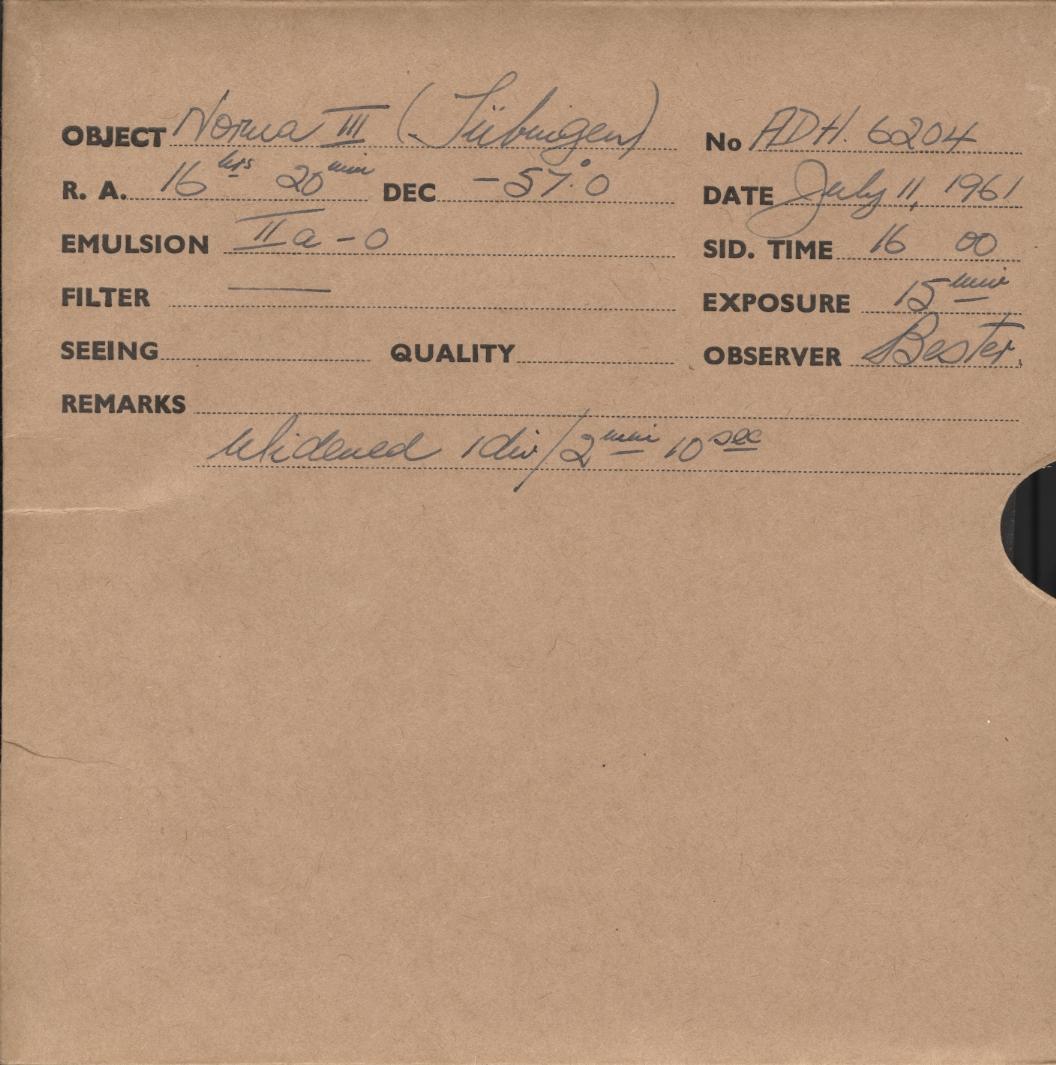 OBJECT Norma III (Tübingen) No ADH. 6204
R. A. 16 hrs 20 min DEC -57°.0 DATE July 11, 1961
EMULSION IIa-0 SID. TIME 16 00
FILTER — EXPOSURE 15 min
SEEING QUALITY OBSERVER Bester.
REMARKS
Widened 1 div/2 min 10 sec